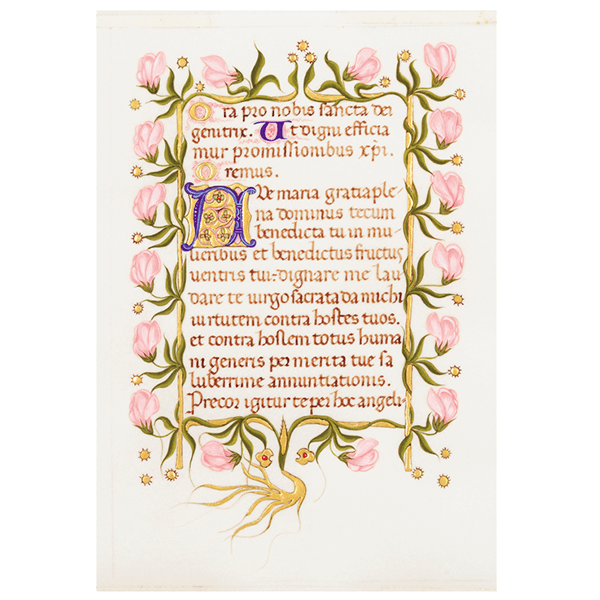 Ora pro nobis sancta dei
genitrix. Ut digni efficia
mur promissionibus xp̄i.
Oremus.
Ave maria gratia ple-
na dominus tecum
benedicta tu in mu-
lieribus et benedictus fructus
ventris tui: dignare me lau
dare te virgo sacrata da michi
virtutem contra hostes tuos.
et contra hostem totus huma
ni generis per merita tue sa
luberrime annuntiationis.
Precor igitur te per hoc angeli-